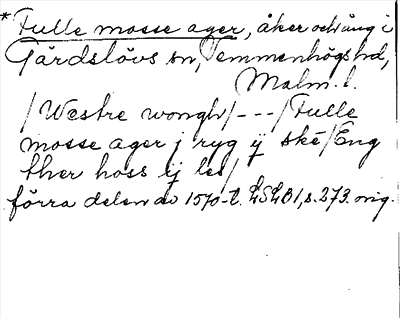 *Fulle mosse ager, åker och äng i
Gärdslövs sn, Vemmenhögs hd,
Malm. l.
/Westre wongh/---/Fulle
mosse ager j ryg ij ske/Eng
ther hoss ij les/
förra delen av 1570-t. LSLB1, s. 273. orig.